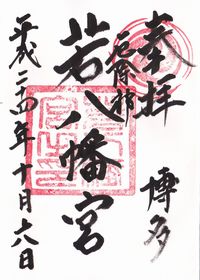 奉拝
博多
厄除
若八幡宮
平成二十四年十月六日